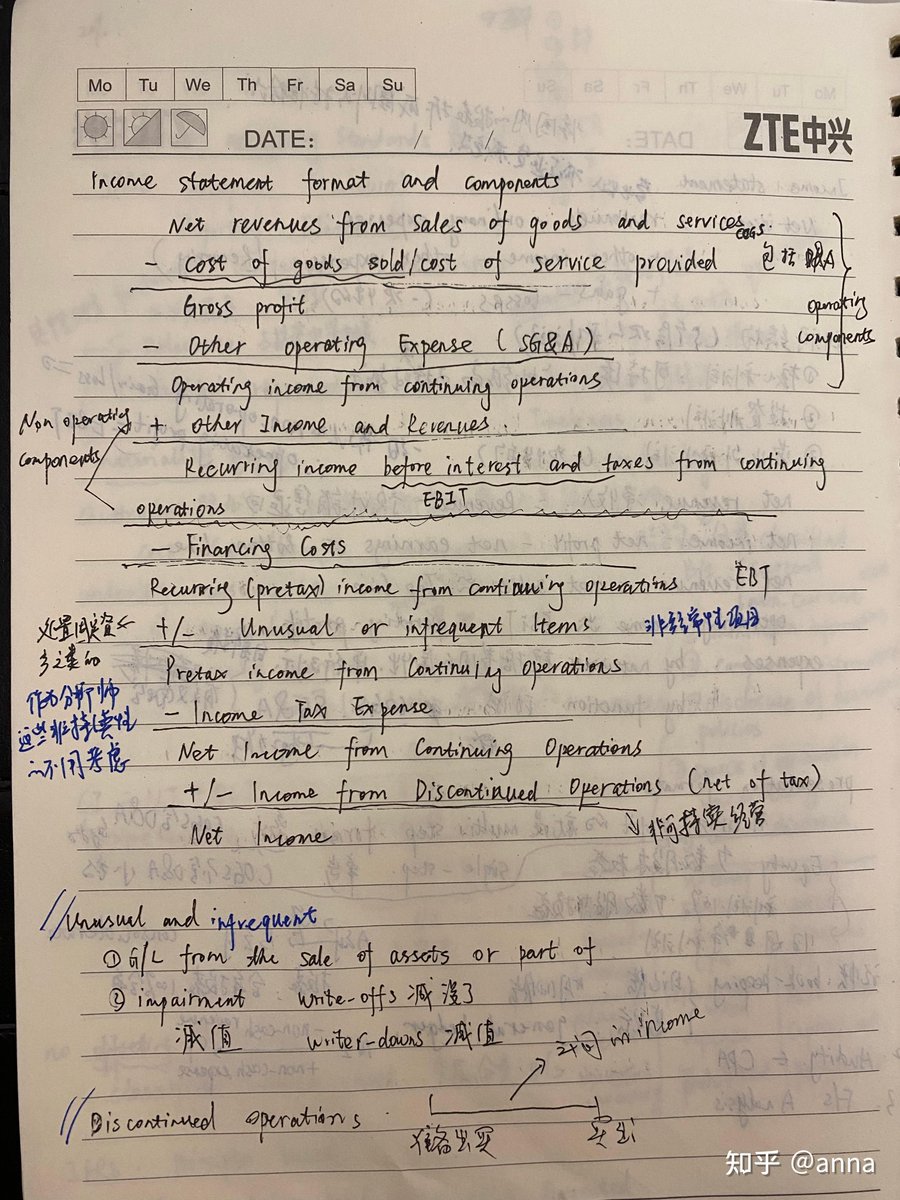 Mo Tu We Th Fr Sa Su
DATE: / /
ZTE中兴
Income statement format and components
Net revenues from sales of goods and services
COGS
- cost of goods sold/cost of service provided 包括 D&A
Gross profit
operating components
- Other operating Expense (SG&A)
Operating income from continuing operations
Non operating components
+ Other Income and Revenues
Recurring income before interest and taxes from continuing
operations EBIT
- Financing Costs
Recurring (pretax) income from continuing operations EBT
处置固定资
+/- Unusual or infrequent Items 非经常性项目
Pretax income from Continuing Operations
作为分析师
这些非持续性
不用考虑
- Income Tax Expense
Net Income from Continuing Operations
+/- Income from Discontinued Operations (net of tax)
Net Income
非可持续经营
// Unusual and infrequent
① G/L from the sale of assets or part of
② impairment write-offs 减没了
减值 writer-downs 减值
之间 in income
// Discontinued operations
准备出买 卖出
知乎 @anna